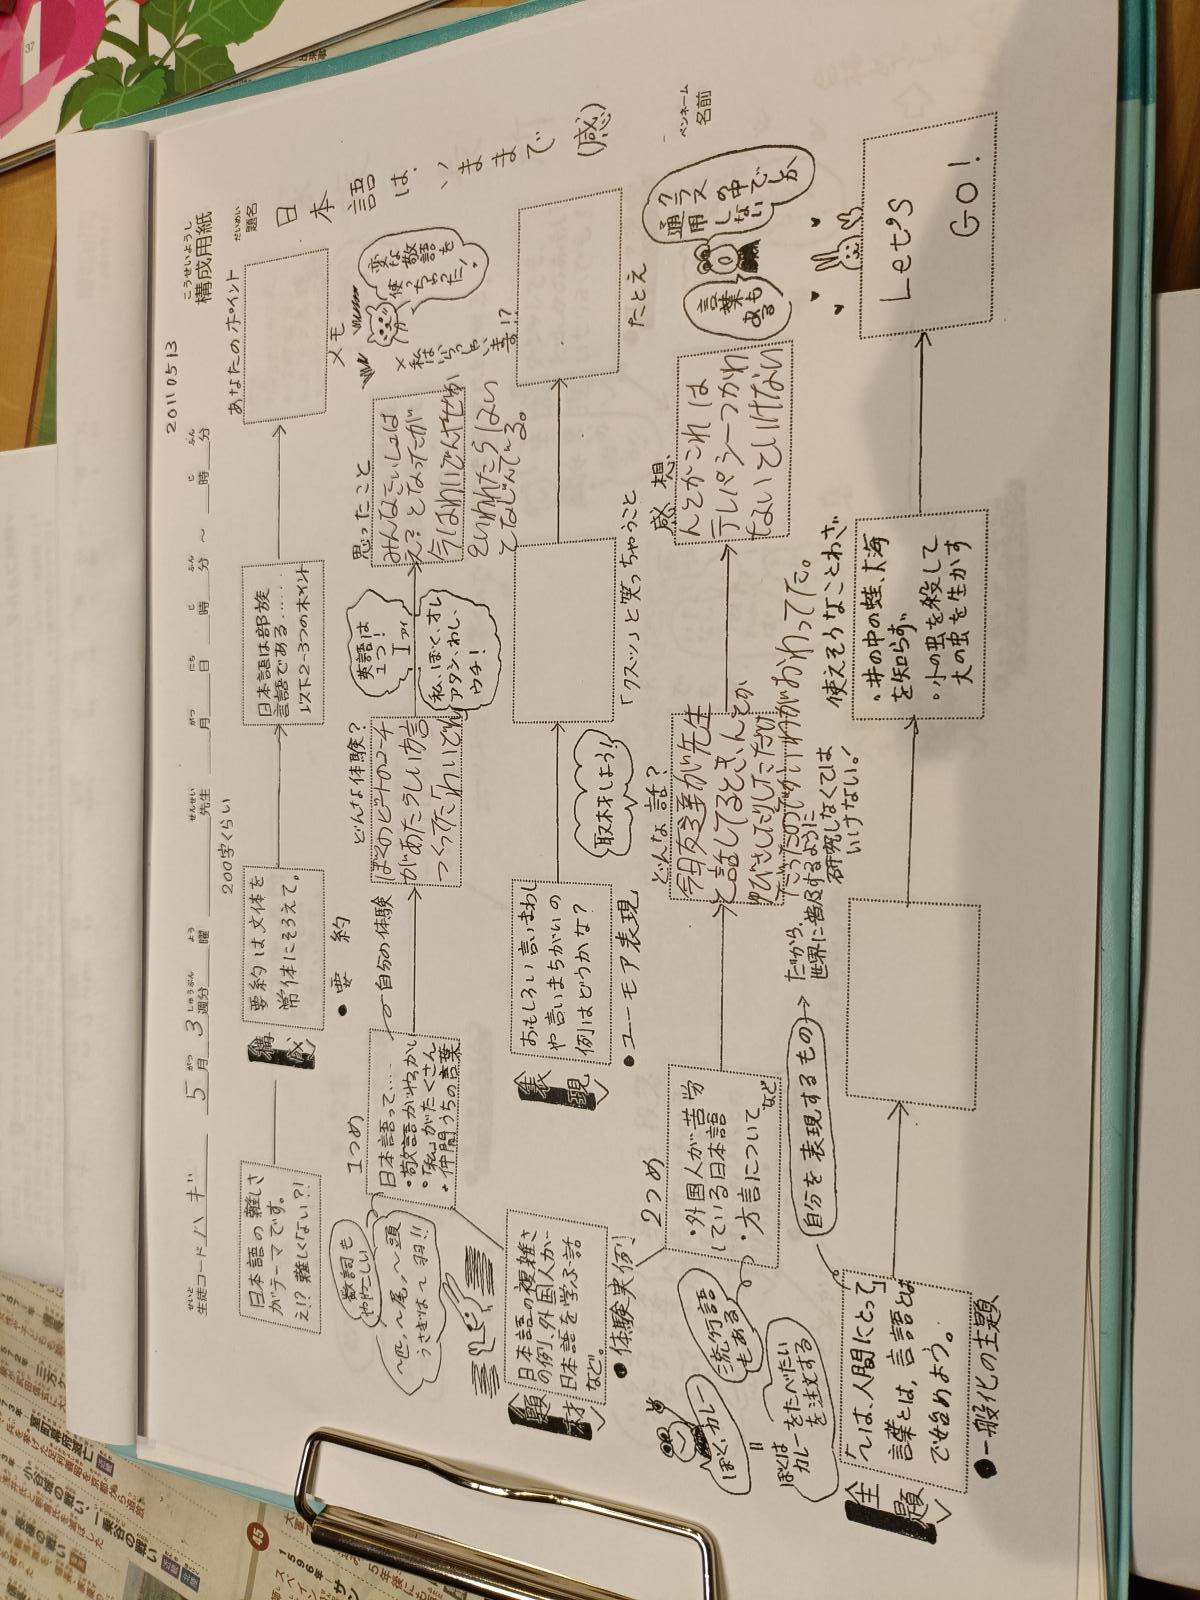 構成用紙
こうせいようし
20110513
生徒コード ハギ 5月 3週分 曜 先生 月 日 時 分 ～ 時 分
題名
だいめい
日本語は、いままで
(感)
ペンネーム
名前
200字くらい
あなたのポイント
日本語の難しさ
がテーマです。
え!? 難しくない?!
構
成
要約は文体を
常体にそろえて。
日本語は部族
言語である……
以下2-3つのポイント
●要約
メモ
1つめ
日本語って…
・敬語がややこしい
・「私」がたくさん
・仲間うちの言葉
自分の体験
どんな体験?
ぼくのビートのコーチ
があたらしい方言
つくってた「わいどん」
思ったこと
みんなさいしょは
え?となったが
今はわいどんやせんか
といわれたらはい
となじんでいる。
数詞も
ややこしい
～匹、～尾、～頭
うさぎは～羽!!
英語は
1つ!
I
アイ
私、ぼく、オレ
アタシ、わし、
ウチ!
変な
敬語を
使っちゃった!
×私は
いらっしゃい
ます!?
題
材
日本語の複雑さ
の例、外国人が
日本語を学ぶ話
など。
●体験実例
表
現
おもしろい言いまわし
や言いまちがいの
例はどうかな?
●ユーモア表現
取材しよう!
「クスッ」と笑っちゃうこと
たとえ
2つめ
・外国人が苦労
している日本語
・方言について
など
流行語
もある
ぼく、カレー
＝
ぼくは
カレーをたべたい
を注文する
どんな話?
今日友達が先生
と話してるとき、んとか
ゆびさしだりしただけ
でうたのでかいわがおわってた。
感想
んとかこれは
テレパシーつかわ
ないといけない
クラス
の中でしか
通用
しない
言葉
も
ある
主
題
「～は、人間にとって」
言葉とは、言語とは
で始めよう。
●一般化の主題
自分を表現するもの
だから、
世界に普及するように
研究しなくては
いけない!
使えそうなことわざ
・井の中の蛙、大海
を知らず
・小の虫を殺して
大の虫を生かす
Let's
GO!